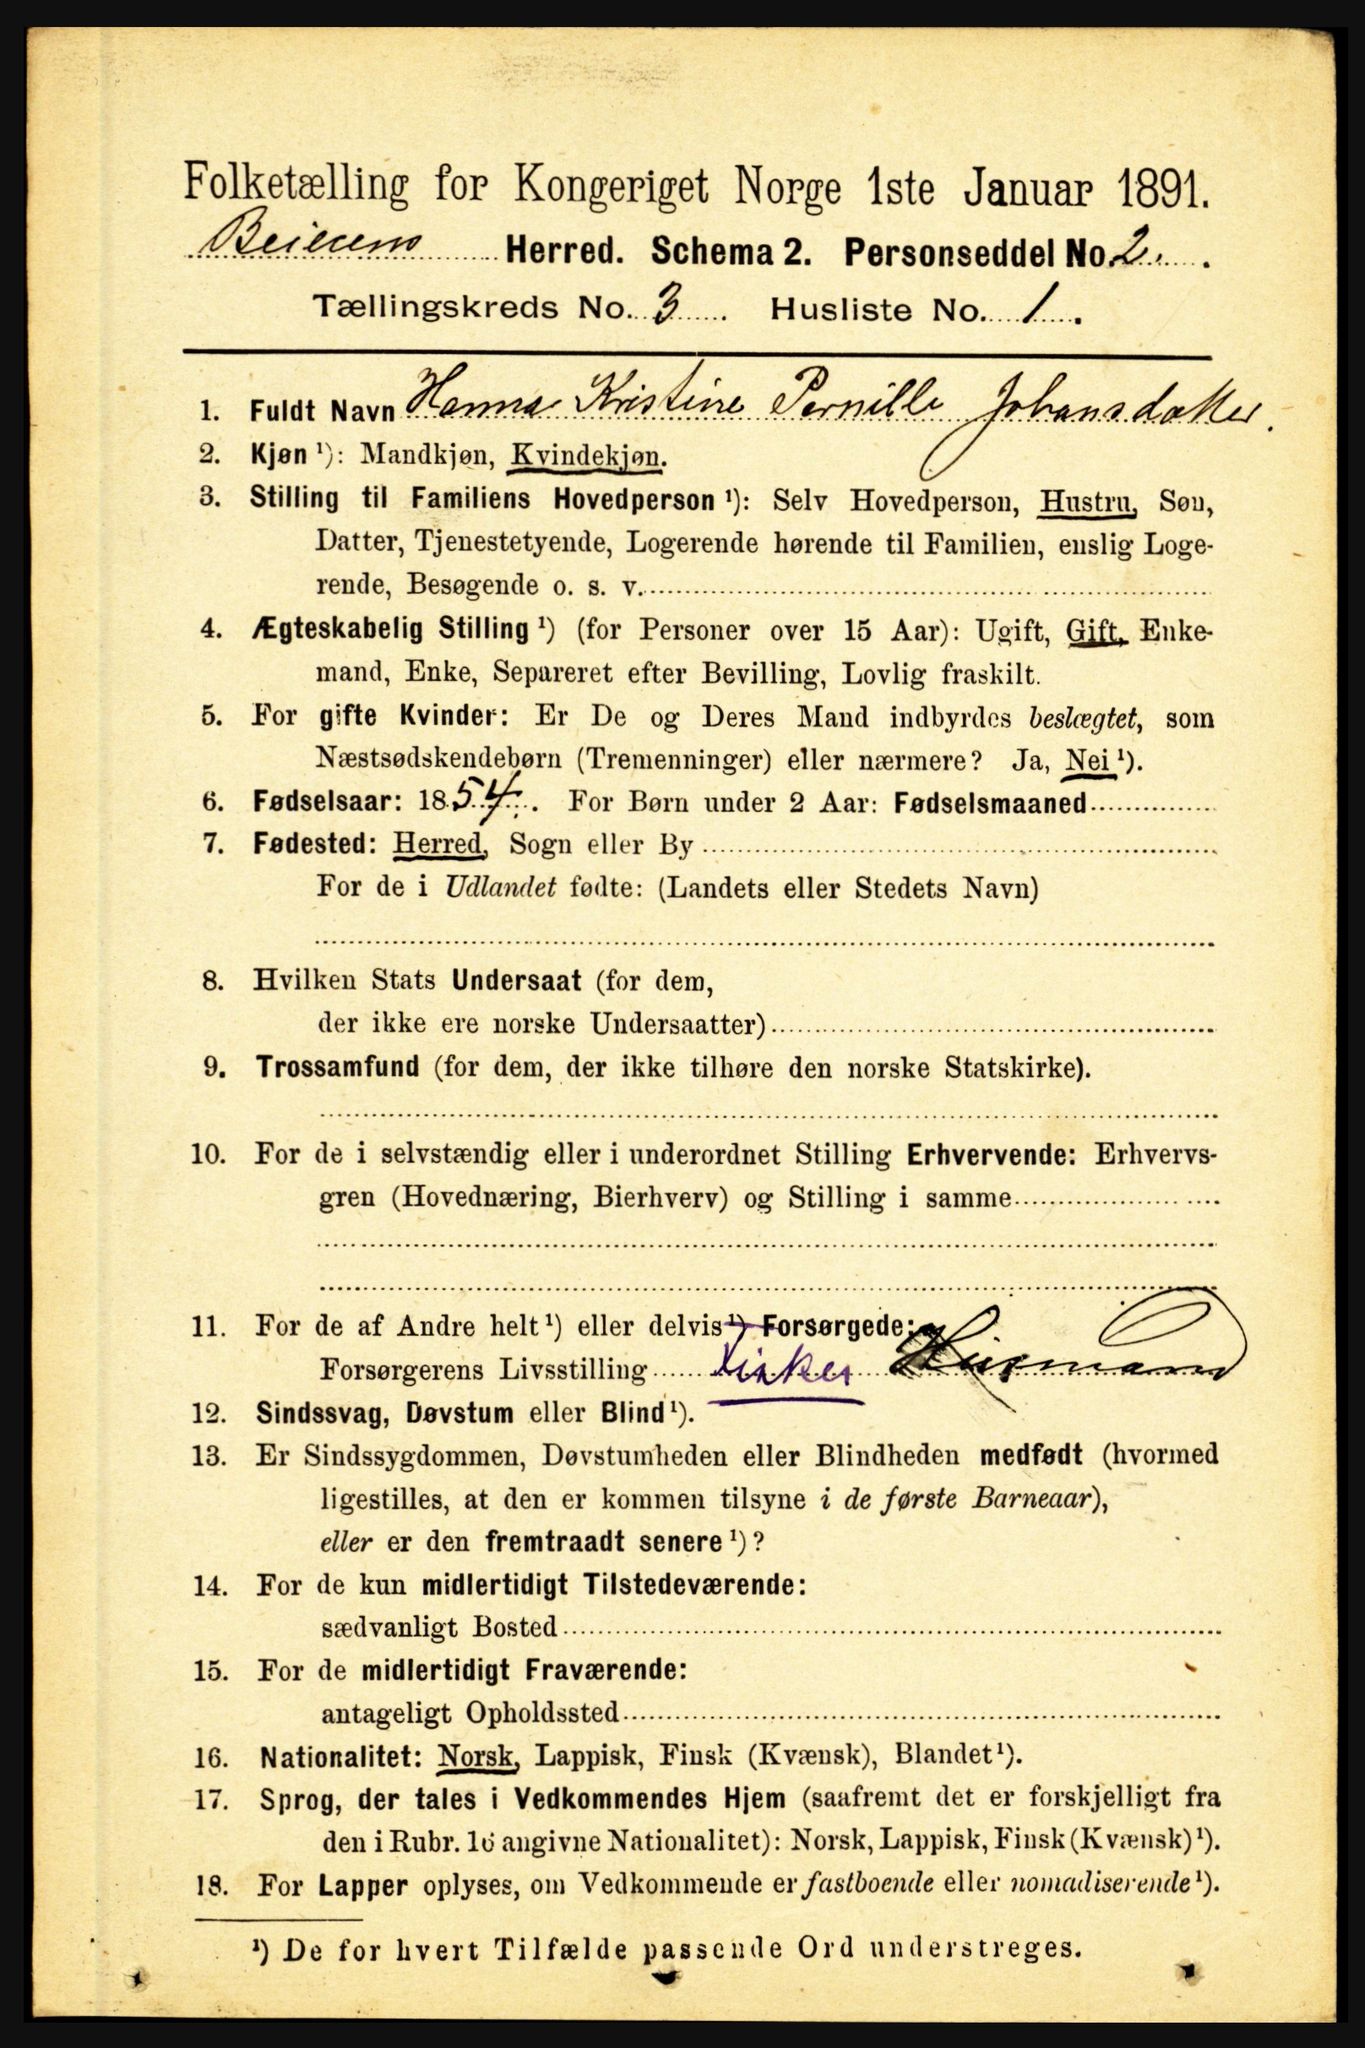 Folketælling for Kongeriget Norge 1ste Januar 1891.
Beierens Herred. Schema 2. Personseddel No. 2.
Tællingskreds No. 3 Husliste No. 1.
1. Fuldt Navn Hanna Kristine Pernille Johansdatter.
2. Kjøn ¹): Mandkjøn, Kvindekjøn.
3. Stilling til Familiens Hovedperson ¹): Selv Hovedperson, Hustru, Søn,
Datter, Tjenestetyende, Logerende hørende til Familien, enslig Loge-
rende, Besøgende o. s. v.
4. Ægteskabelig Stilling ¹) (for Personer over 15 Aar): Ugift, Gift, Enke-
mand, Enke, Separeret efter Bevilling, Lovlig fraskilt.
5. For gifte Kvinder: Er De og Deres Mand indbyrdes beslægtet, som
Næstsødskendebørn (Tremenninger) eller nærmere? Ja, Nei ¹).
6. Fødselsaar: 1854. For Børn under 2 Aar: Fødselsmaaned
7. Fødested: Herred, Sogn eller By
For de i Udlandet fødte: (Landets eller Stedets Navn)
8. Hvilken Stats Undersaat (for dem,
der ikke ere norske Undersaatter)
9. Trossamfund (for dem, der ikke tilhøre den norske Statskirke).
10. For de i selvstændig eller i underordnet Stilling Erhvervende: Erhvervs-
gren (Hovednæring, Bierhverv) og Stilling i samme
11. For de af Andre helt ¹) eller delvis ¹) Forsørgede:
Forsørgerens Livsstilling Fisker Husmand
12. Sindssvag, Døvstum eller Blind ¹).
13. Er Sindssygdommen, Døvstumheden eller Blindheden medfødt (hvormed
ligestilles, at den er kommen tilsyne i de første Barneaar),
eller er den fremtraadt senere ¹)?
14. For de kun midlertidigt Tilstedeværende:
sædvanligt Bosted
15. For de midlertidigt Fraværende:
antageligt Opholdssted
16. Nationalitet: Norsk, Lappisk, Finsk (Kvænsk), Blandet ¹).
17. Sprog, der tales i Vedkommendes Hjem (saafremt det er forskjelligt fra
den i Rubr. 16 angivne Nationalitet): Norsk, Lappisk, Finsk (Kvænsk) ¹).
18. For Lapper oplyses, om Vedkommende er fastboende eller nomadiserende ¹).
¹) De for hvert Tilfælde passende Ord understreges.